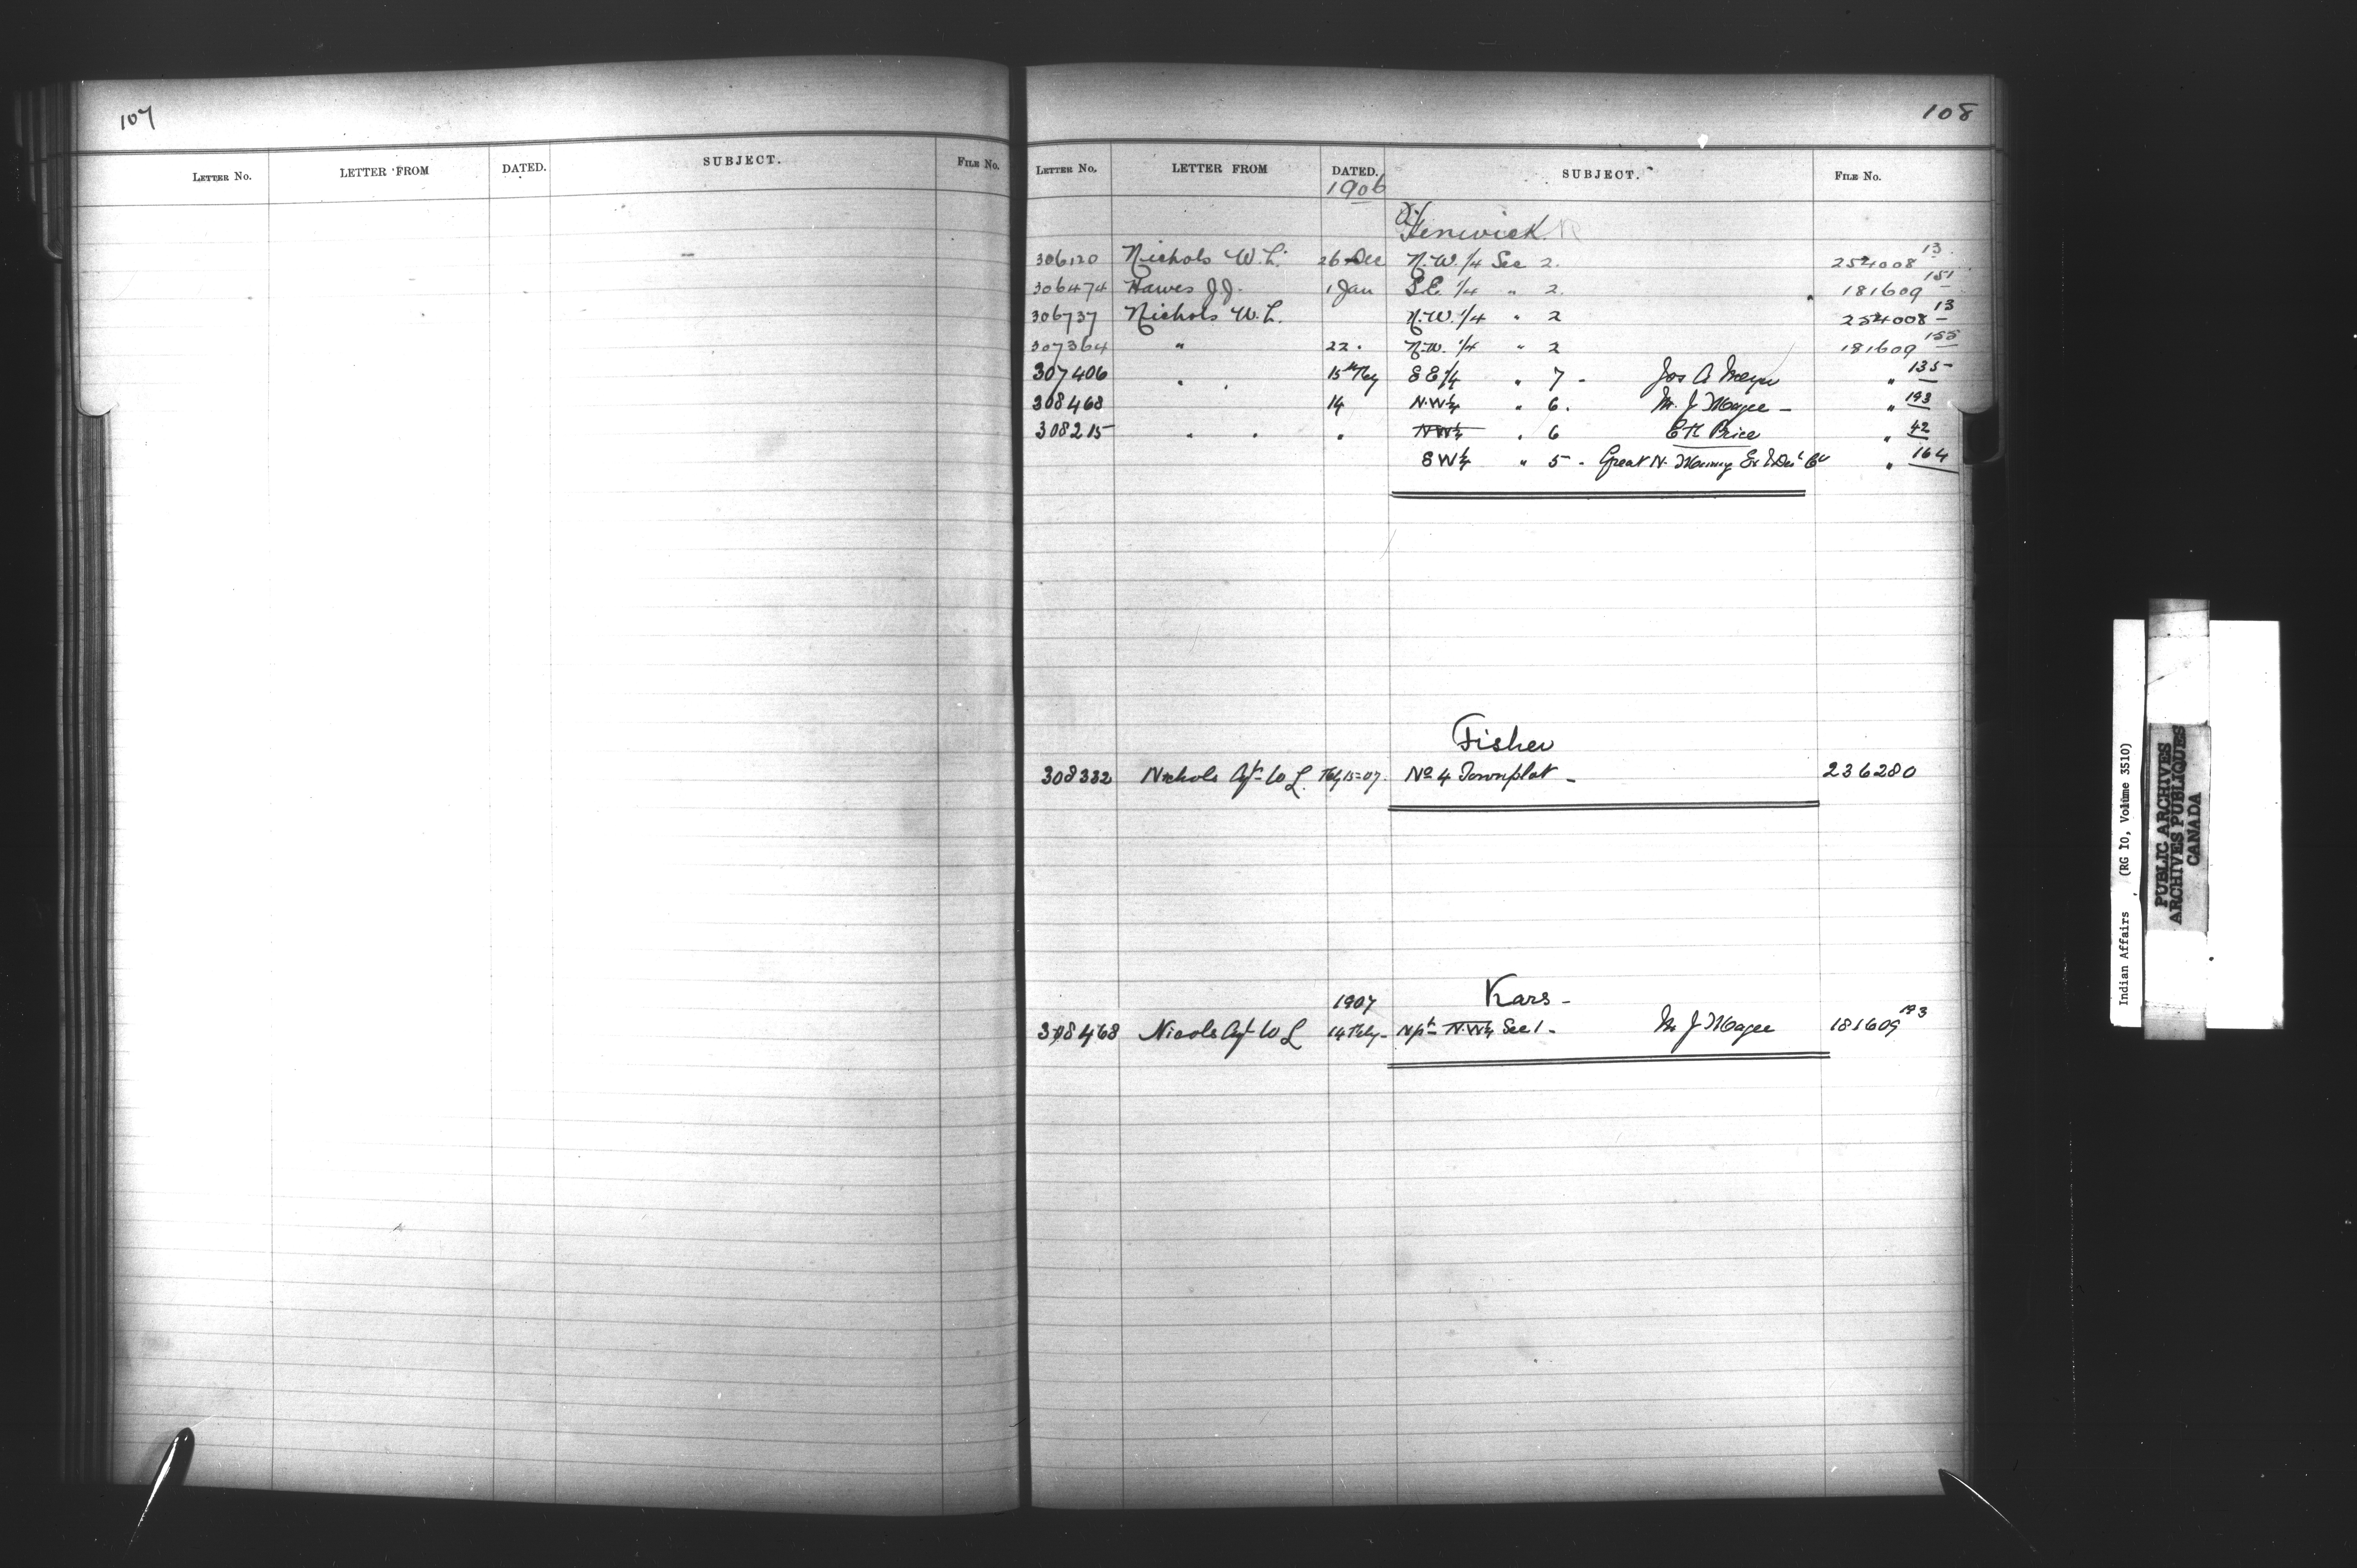 107
LETTER No. LETTER FROM DATED. SUBJECT. FILE No.
108
LETTER No. LETTER FROM DATED. SUBJECT. FILE No.
1906
Fenwick
306120 Nichols W. L. 26 Dec N.W. 1/4 Sec 2. 254008 13
306474 Hawes J.J. 1 Jan S.E. 1/4 " 2. 181609 151
306737 Nichols W. L. N.W. 1/4 " 2 254008 13
307364 " 22. N.W. 1/4 " 2 181609 155
307406 " " 15th Feby SE 1/4 " 7 - Jos A " 135
308468 14 N.W 1/4 " 6. M. J Magee - " 193
308215 " " " NW 1/4 " 6 E K Price " 42
SW 1/4 " 5 - Great N. " 164
Fisher
308332 Nichols Agt W L. Feby 15=07. No 4 Townplot - 236280
Kars -
1907
308468 Nicols Agt W L 14 Feby - N pt N.W 1/4 Sec 1 - M J Magee 181609 193
Indian Affairs (RG 10, Volume 3510)
PUBLIC ARCHIVES
ARCHIVES PUBLIQUES
CANADA